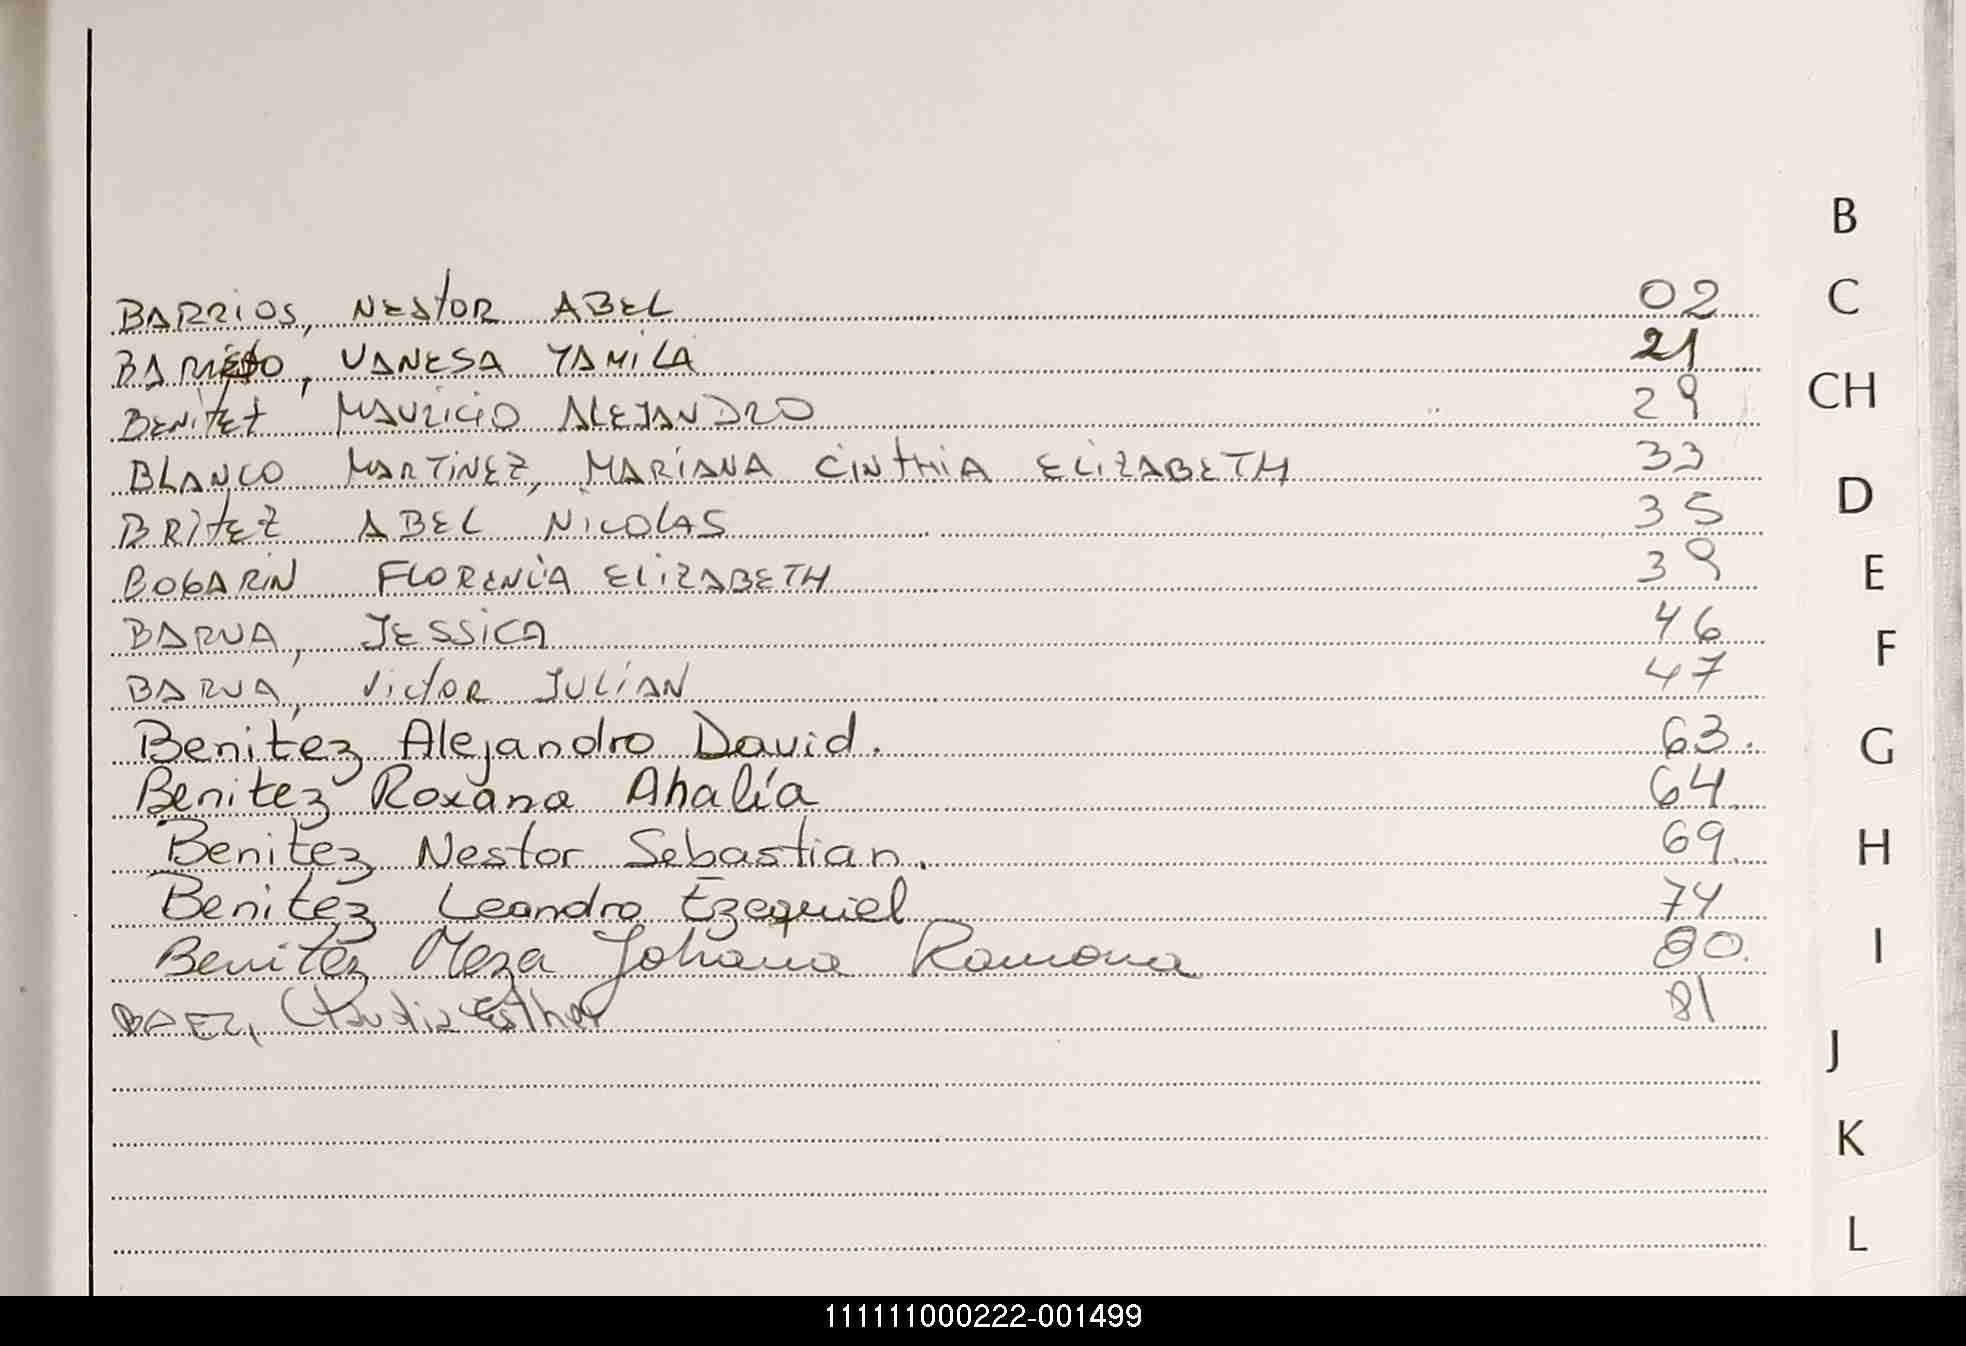 B
BARRIOS, NESTOR ABEL 02
C
VANESA YAMILA 21
CH
MAURICIO ALEJANDRO 29
BLANCO MARTINEZ, MARIANA CINTHIA ELIZABETH 33
D
BRITEZ ABEL NICOLAS 35
E
BOGARIN FLORENCIA ELIZABETH 39
BARUA, JESSICA 46
F
BARUA, VICTOR JULIAN 47
Benitez Alejandro David. 63.
G
Benitez Roxana Ahalía 64.
Benitez Nestor Sebastian. 69.
H
Benitez Leandro Ezequiel 74
Benitez Meza Johana Ramona 80.
I
BAEZ, Claudia Esther 81
J
K
L
111111000222-001499